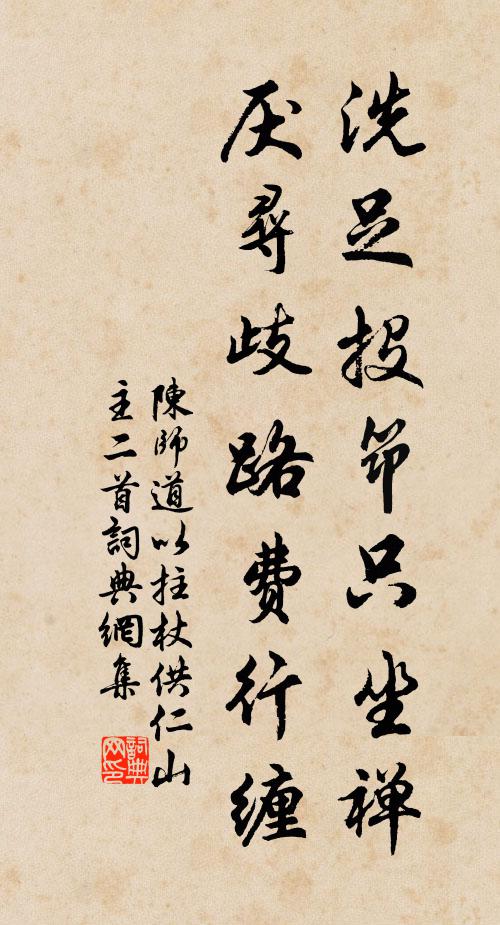 洗足投筇只坐禅
厌尋歧路費行缠
陳師道以拄杖供仁山
主二首詞典網集
詞典
网印